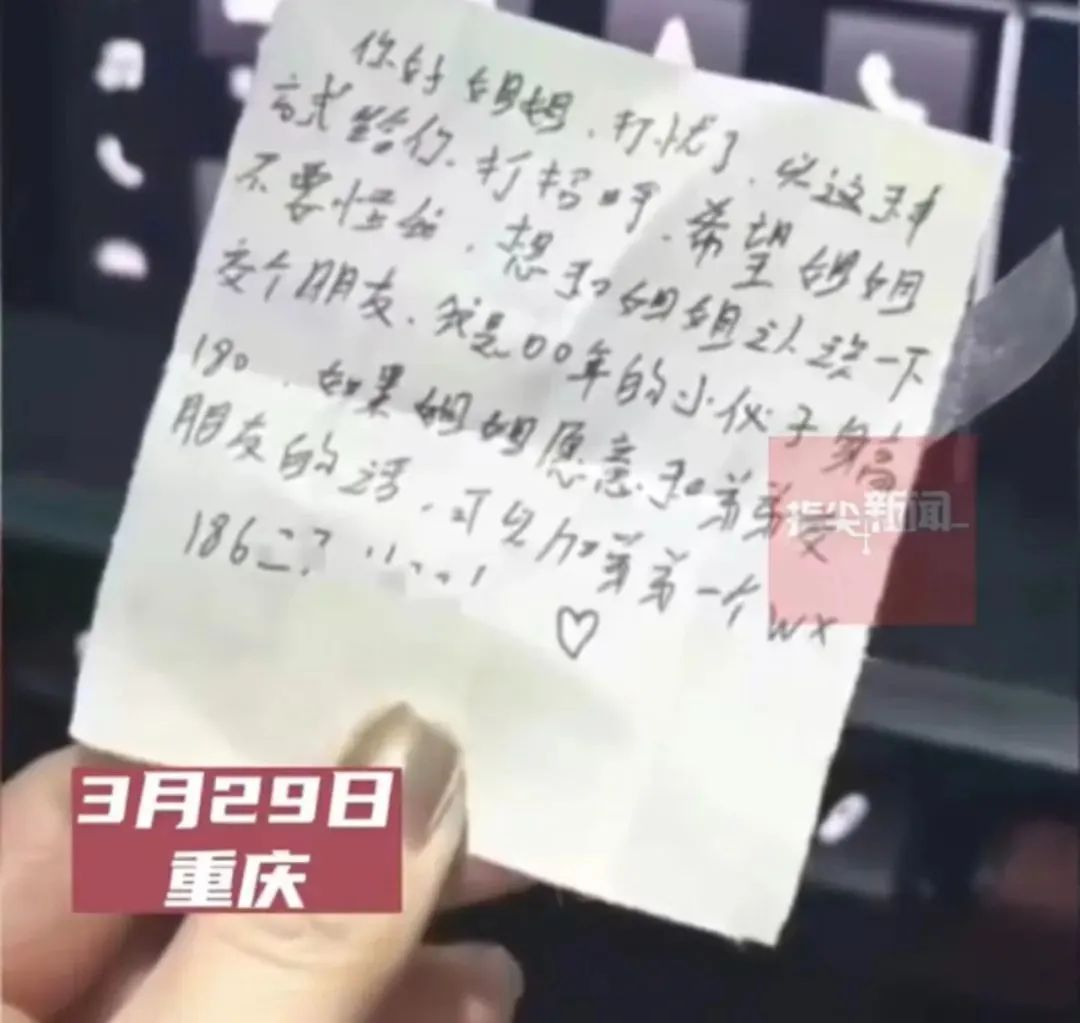 你好姐姐，打扰了，以这种
方式给你打招呼，希望姐姐
不要怪我，想和姐姐认识一下
交个朋友，我是00年的小伙子身高
180，如果姐姐愿意和弟弟交
朋友的话，可以加弟弟一个wx
186
♡
指尖新闻
3月29日
重庆